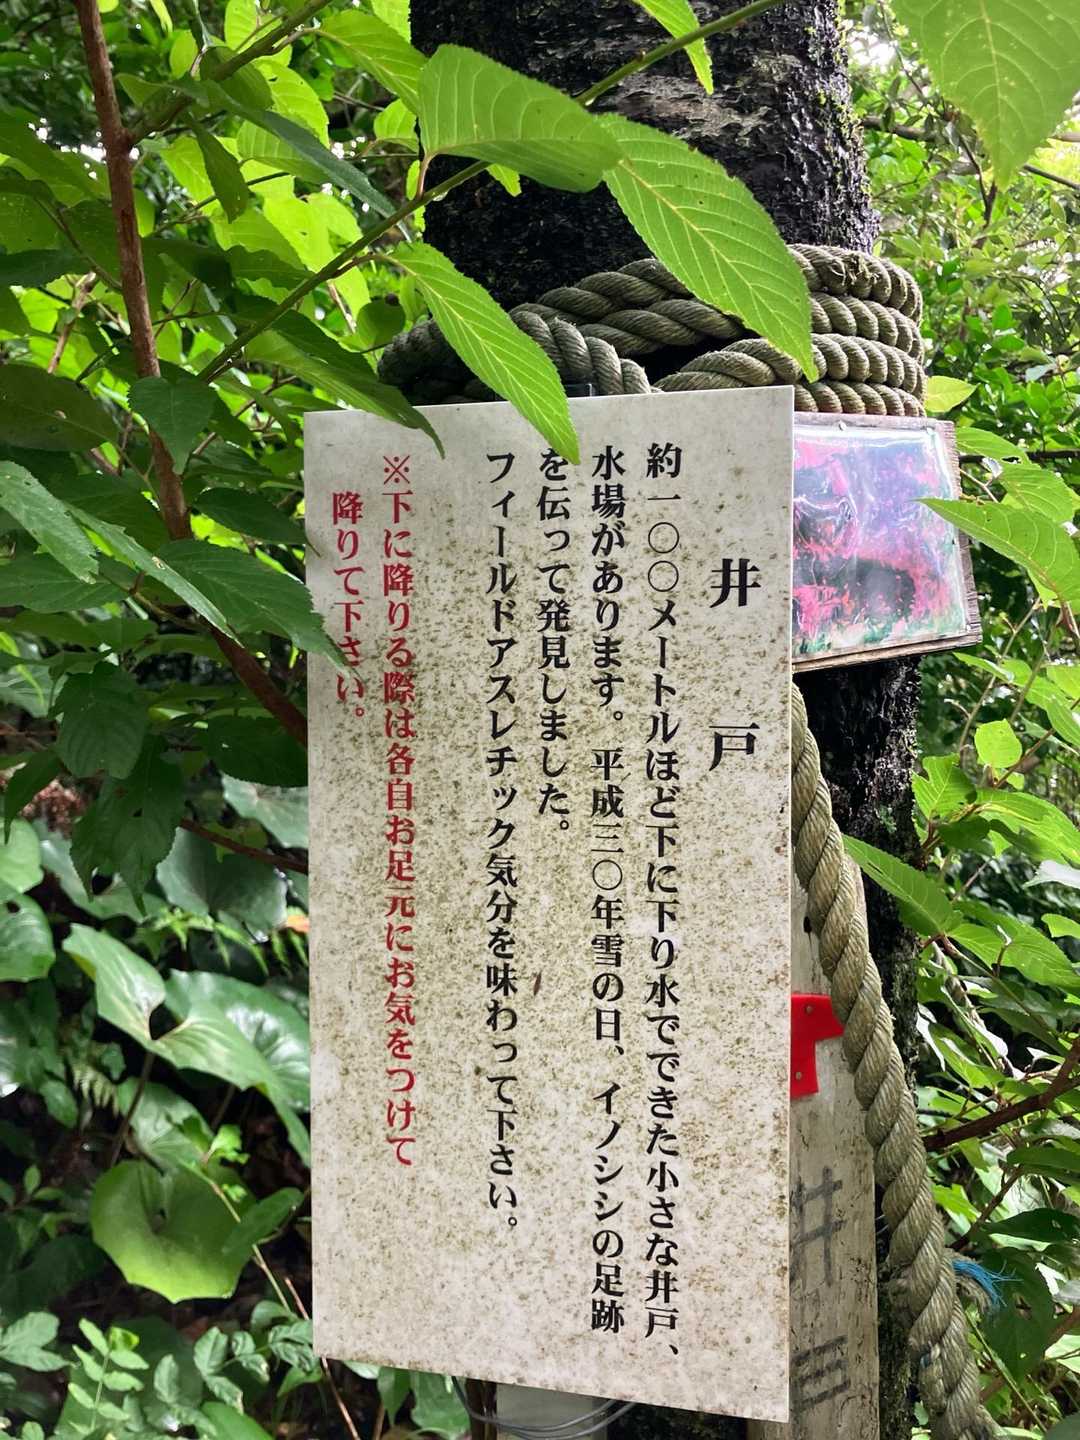 井戸
約一〇〇メートルほど下に下り水でできた小さな井戸、
水場があります。平成三〇年雪の日、イノシシの足跡
を伝って発見しました。
フィールドアスレチック気分を味わって下さい。
※下に降りる際は各自お足元にお気をつけて
降りて下さい。
井戸